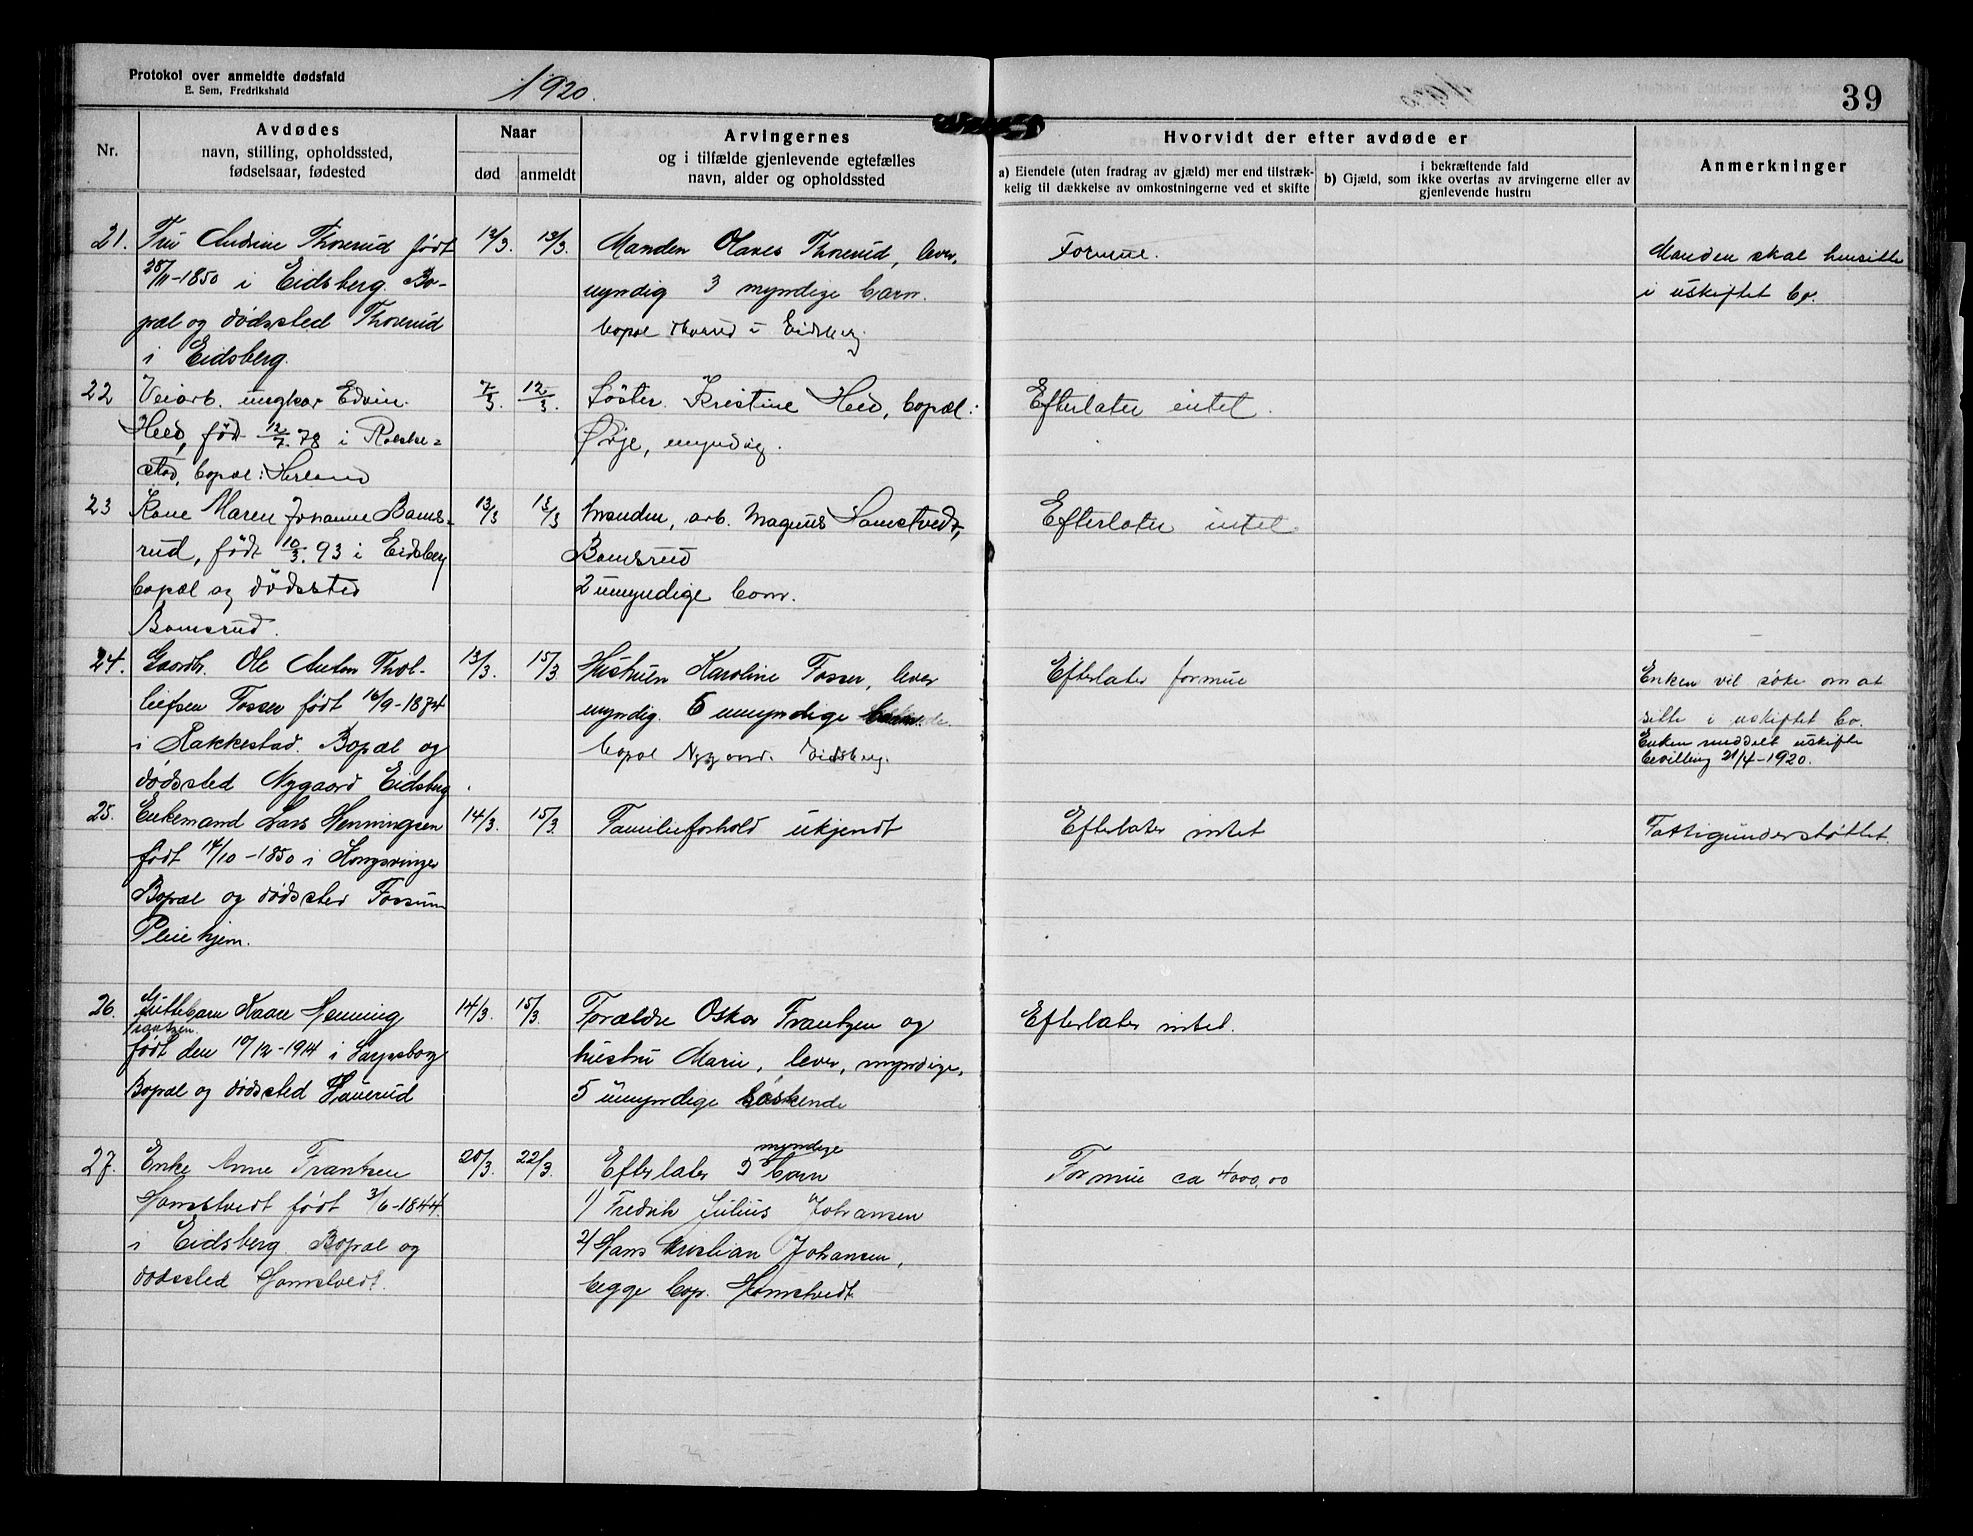 Protokol over anmeldte dødsfald
E. Sem, Fredrikshald
1920.
39
Nr.
Avdødes
navn, stilling, opholdssted,
fødselsaar, fødested
Naar
død
anmeldt
Arvingernes
og i tilfælde gjenlevende egtefælles
navn, alder og opholdssted
Hvorvidt der efter avdøde er
a) Eiendele (uten fradrag av gjæld) mer end tilstræk-
kelig til dækkelse av omkostningerne ved et skifte
i bekræftende fald
b) Gjæld, som ikke overtas av arvingerne eller av
gjenlevende hustru
Anmerkninger
21.
Fru Andrine Thorerud født
28/11-1850 i Eidsberg. Bo-
pæl og dødssted Thorerud
i Eidsberg.
12/3.
13/3.
Manden Olaves Thorerud, lever,
myndig 3 myndige barn.
bopæl Thorrud i Eidsberg
Formue.
Manden skal hensitte
i uskiftet bo.
22
Veiarb. ungkar Edvin
Heed, født 12/7.78 i Rakke=
stad, bopæl: Herland
7/3.
12/3.
Søster Kristine Heed, bopæl:
Ørje, myndig.
Efterlater intet.
23
Kone Maren Johanne Bams-
rud, født 10/3.93 i Eidsberg
bopæl og dødssted
Bamsrud.
13/3
13/3
Manden, arb. Magnus Hamstvedt,
Bamsrud
2 umyndige barn.
Efterlater intet.
24.
Gaardb. Ole Anton Thol-
leifsen Fosser født 16/9-1874
i Rakkestad. Bopæl og
dødssted Nygaard Eidsberg.
13/3.
15/3
Hustruen Karoline Fosser, lever
myndig. 5 umyndige barn.
bopæl Nygaard. Eidsberg.
Efterlater formue
Enken vil søke om at
sitte i uskiftet bo.
Enken meddelt uskifte
bevilling 21/4-1920.
25.
Enkemand Lars Henningsen
født 14/10-1850 i Kongsvinger
Bopæl og dødssted Fossum
Pleiehjem.
14/3.
15/3.
Familieforhold ukjendt
Efterlater intet
Fattigunderstøttet.
26.
Guttebarn Kaare Henning
Frantzen
født den 10/12-1914 i Sarpsborg
Bopæl og dødssted Haverud
14/3.
15/3.
Forældre Oskar Frantzen og
hustru Marie, lever, myndige,
5 umyndige søskende
Efterlater intet.
27.
Enke Anne Frantsen
Hamstvedt født 3/6-1844.
i Eidsberg. Bopæl og
dødssted Hamstvedt.
20/3.
22/3.
myndige
Efterlater 2 barn
1) Fredrik Julius Johansen
2) Hans Kristian Johansen,
begge bop. Hamstvedt
Formue ca 4000,00